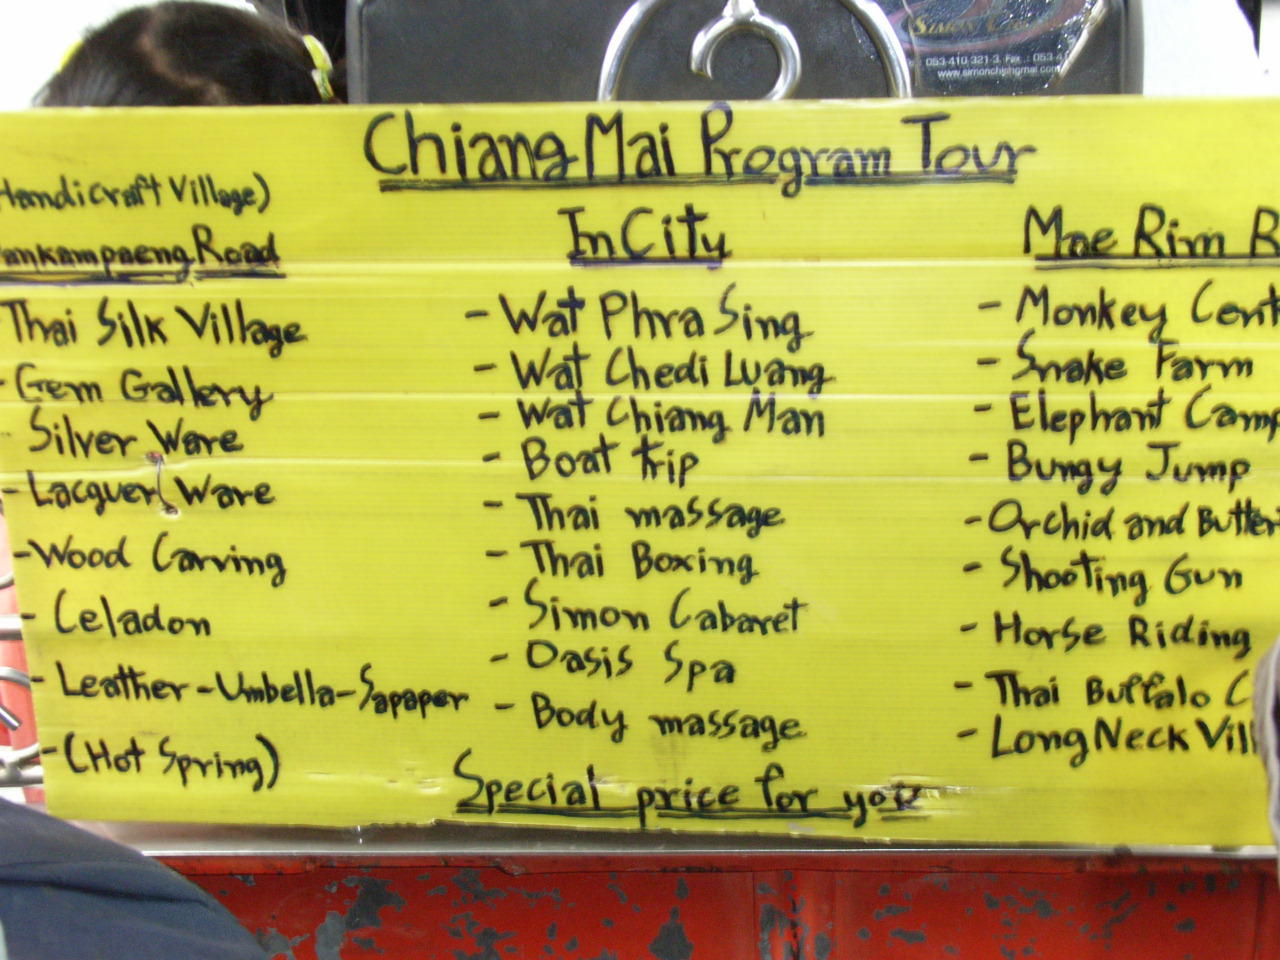 053-410 321-3, Fax. : 053-4
Chiang Mai Program Tour
Handicraft Village)
ankampaeng Road
Thai Silk Village
- Gem Gallery
Silver Ware
- Lacquer Ware
- Wood Carving
- Celadon
- Leather - Umbella - Sapaper
- (Hot Spring)
In City
- Wat Phra Sing
- Wat Chedi Luang
- Wat Chiang Man
- Boat trip
- Thai massage
- Thai Boxing
- Simon Cabaret
- Oasis Spa
- Body massage
Mae Rim R
- Monkey Cent
- Snake Farm
- Elephant Camp
- Bungy Jump
- Orchid and Butter
- Shooting Gun
- Horse Riding
- Thai Buffalo C
- Long Neck Vill
Special price for you